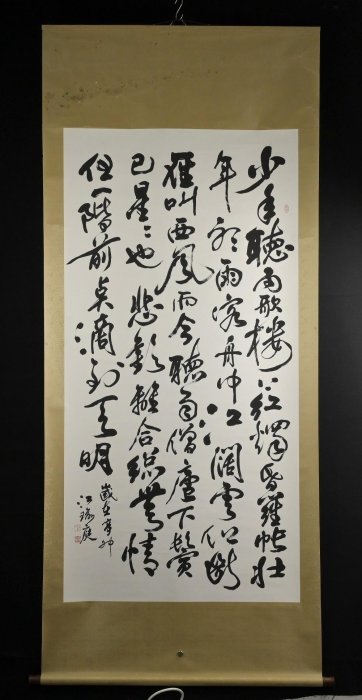 少年聽雨歌樓上紅燭昏羅帳壯
年聽雨客舟中江闊雲低斷
雁叫西風而今聽雨僧廬下鬢
已星々也悲歡離合總無情
任一階前點滴到天明
歲在
江 庭